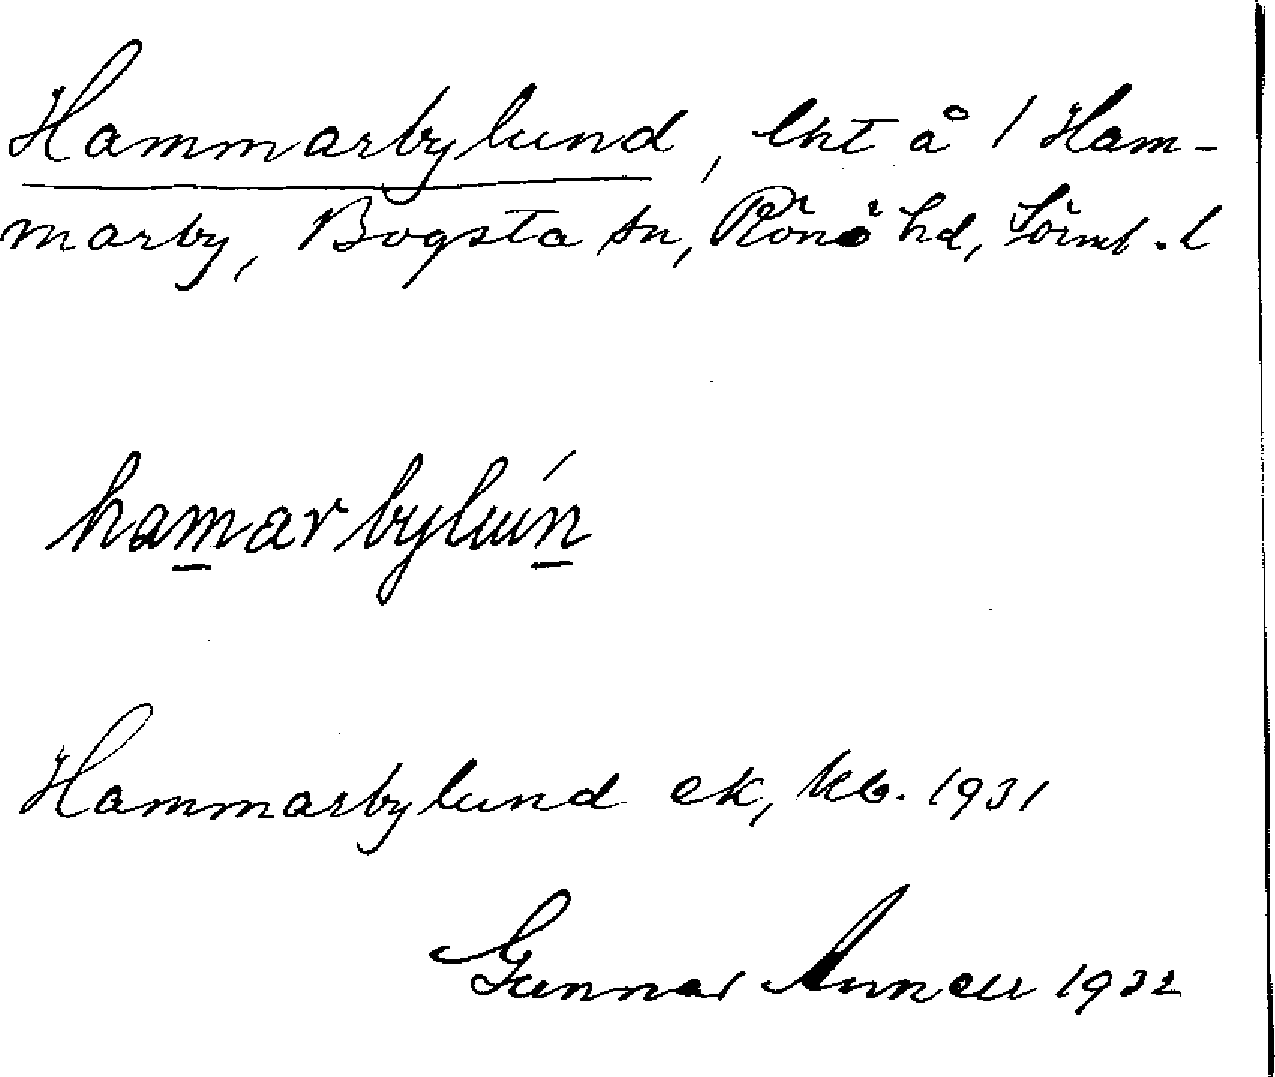 Hammarbylund, lht å 1 Ham-
marby, Bogsta sn, Rönö hd, Sörml. l
hamarbylún
Hammarbylund ek, kb. 1931
Gunnar Annell 1932